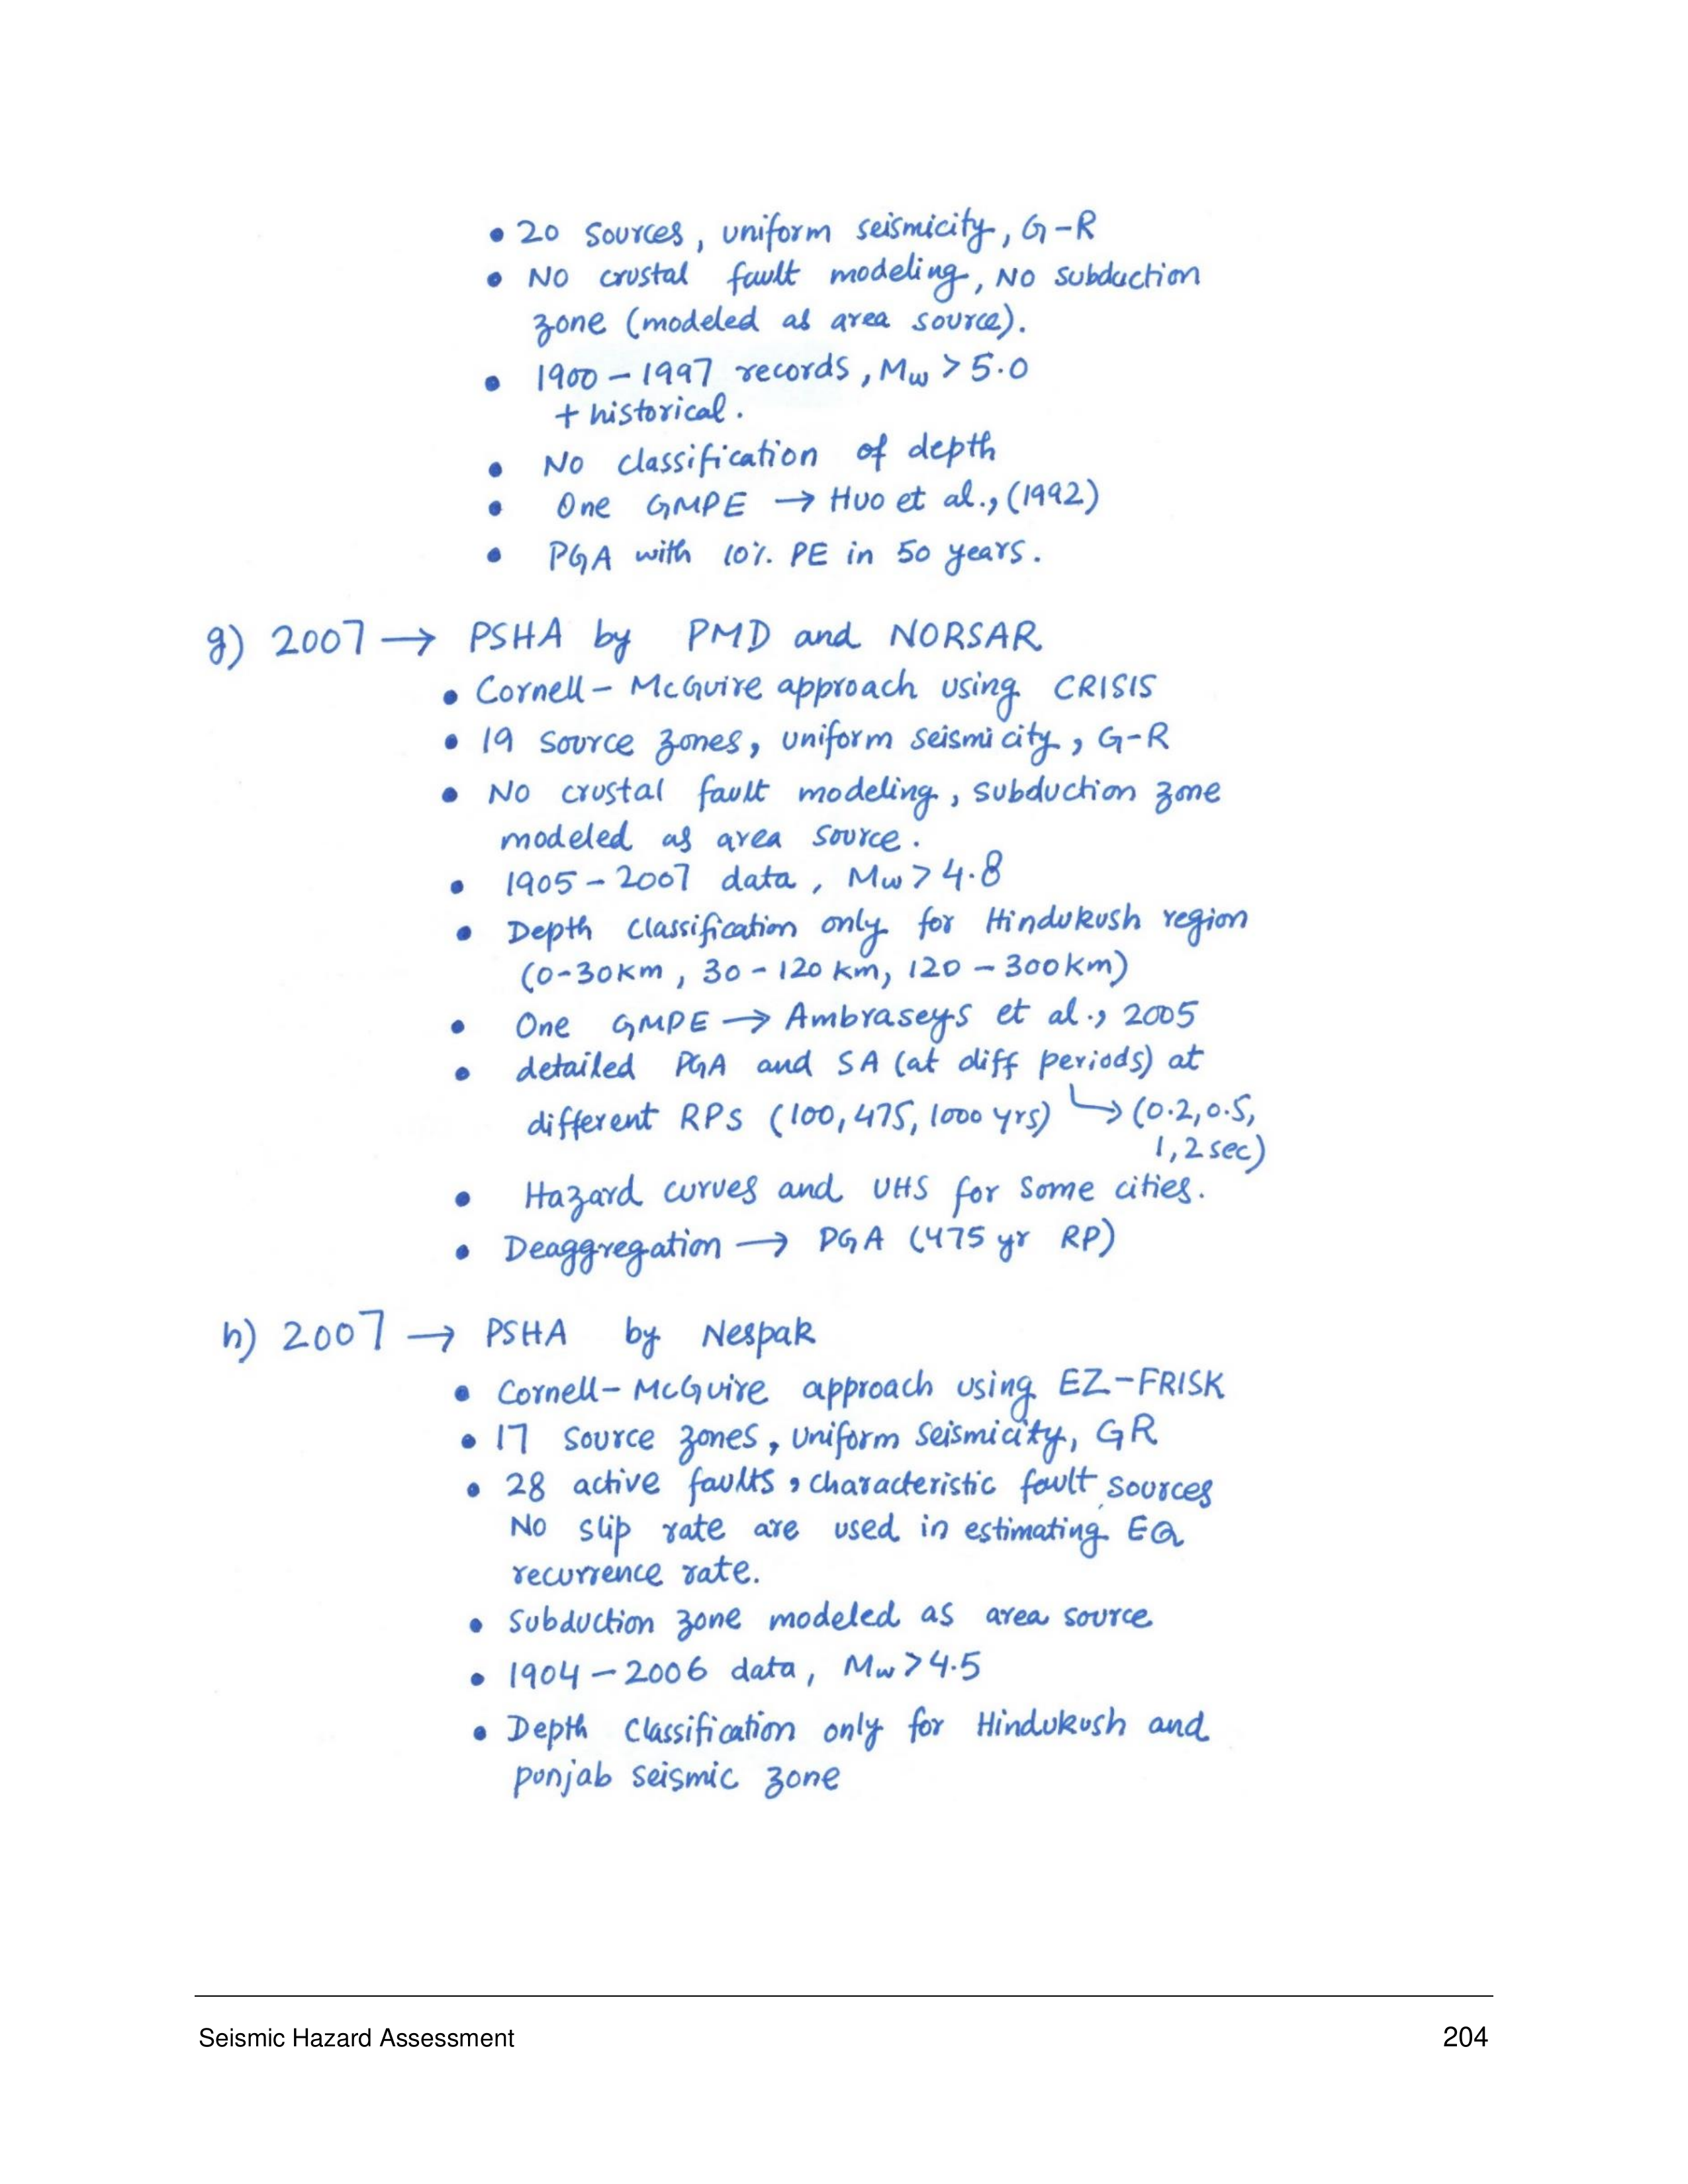 • 20 sources, uniform seismicity, G-R
• No crustal fault modeling, No subduction
zone (modeled as area source).
• 1900 - 1997 records, Mw > 5.0
+ historical.
• No classification of depth
• One GMPE → Huo et al., (1992)
• PGA with 10% PE in 50 years.
g) 2007 → PSHA by PMD and NORSAR
• Cornell - McGuire approach using CRISIS
• 19 source zones, uniform seismicity, G-R
• No crustal fault modeling, subduction zone
modeled as area source.
• 1905 - 2007 data, Mw > 4.8
• Depth classification only for Hindukush region
(0-30km, 30 - 120 km, 120 - 300km)
• One GMPE → Ambraseys et al., 2005
• detailed PGA and SA (at diff periods) at
different RPs (100, 475, 1000 yrs) ↳ (0.2, 0.5,
1, 2 sec)
• Hazard curves and UHS for some cities.
• Deaggregation → PGA (475 yr RP)
h) 2007 → PSHA by Nespak
• Cornell - McGuire approach using EZ-FRISK
• 17 source zones, uniform seismicity, GR
• 28 active faults, characteristic fault sources
No slip rate are used in estimating EQ
recurrence rate.
• Subduction zone modeled as area source
• 1904 - 2006 data, Mw > 4.5
• Depth classification only for Hindukush and
punjab seismic zone
Seismic Hazard Assessment 204